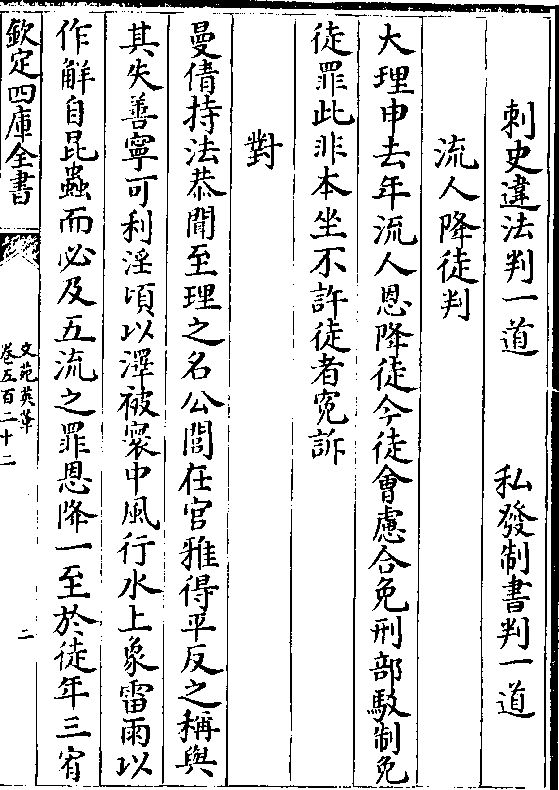 刺史違法判一道　私發制書判一道
流人降徒判
大理申去年流人恩降徒今徒會慮合免刑部駮制免
徒罪此非本坐不許徒者寃訴
對
曼倩持法恭聞至理之名公閭在官雅得平反之稱與
其失善寧可利淫頃以澤被寰中風行水上象雷雨以
作解自昆蟲而必及五流之罪恩降一至於徒年三宥
欽定四庫全書
文苑英華
卷五百二十二
二